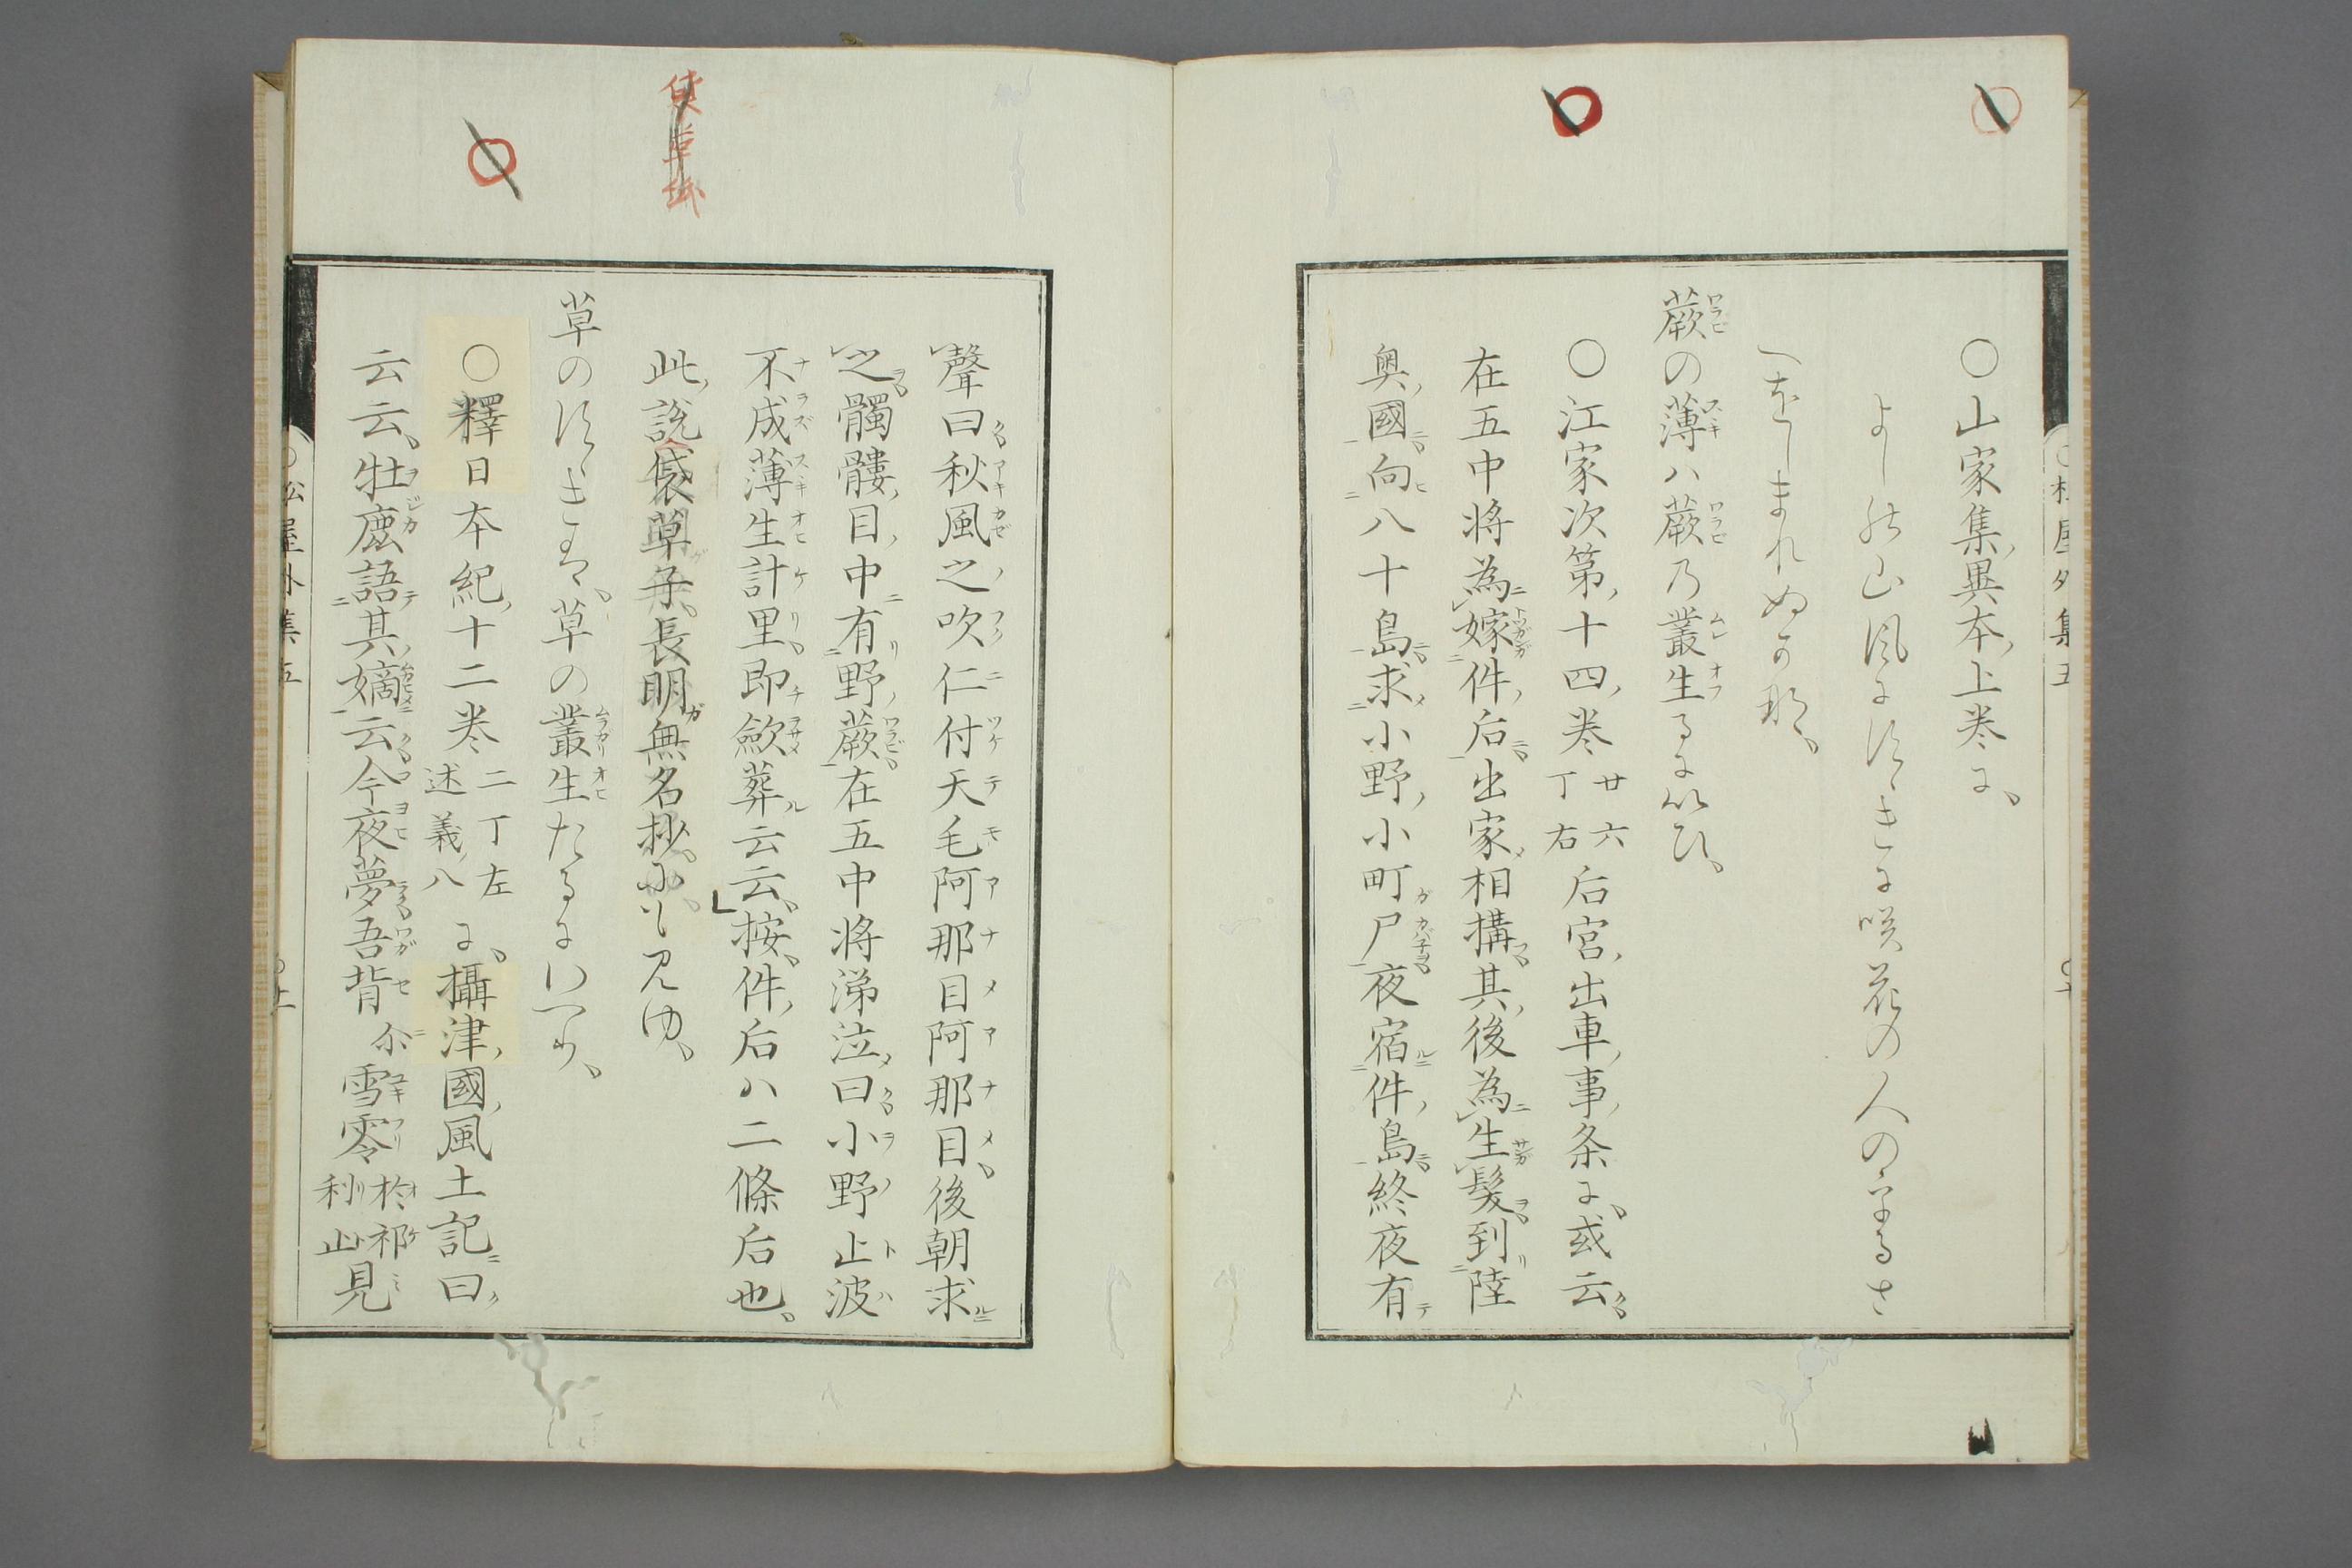 ○山家集異本上巻に、
よしの山風にすゝきに咲花の人のをるさ
へをしまれぬかな、
蕨の薄ハ蕨乃叢生るにいひ、
○江家次第十四巻廿六丁右后宮出車事条に、或云
在五中将為嫁件后出家相構其後為生髪到陸
奥國向八十島求小野小町尸夜宿件島終夜有
聲曰秋風之吹仁付天毛阿那目阿那目、後朝求
之髑髏目中有野蕨在五中将涕泣曰小野止波
不成薄生計里、即歛葬云云、按、件后ハ二條后也、
此説袋草子、長明無名抄、にも見ゆ、
草のすゝきは、草の叢生たるにいへり、
○釋日本紀十二巻二丁左述義八に、攝津國風土記曰
云云、牡鹿語其嫡云今夜夢吾背尓雪零於祁利止見
袋草紙
○松屋外集五